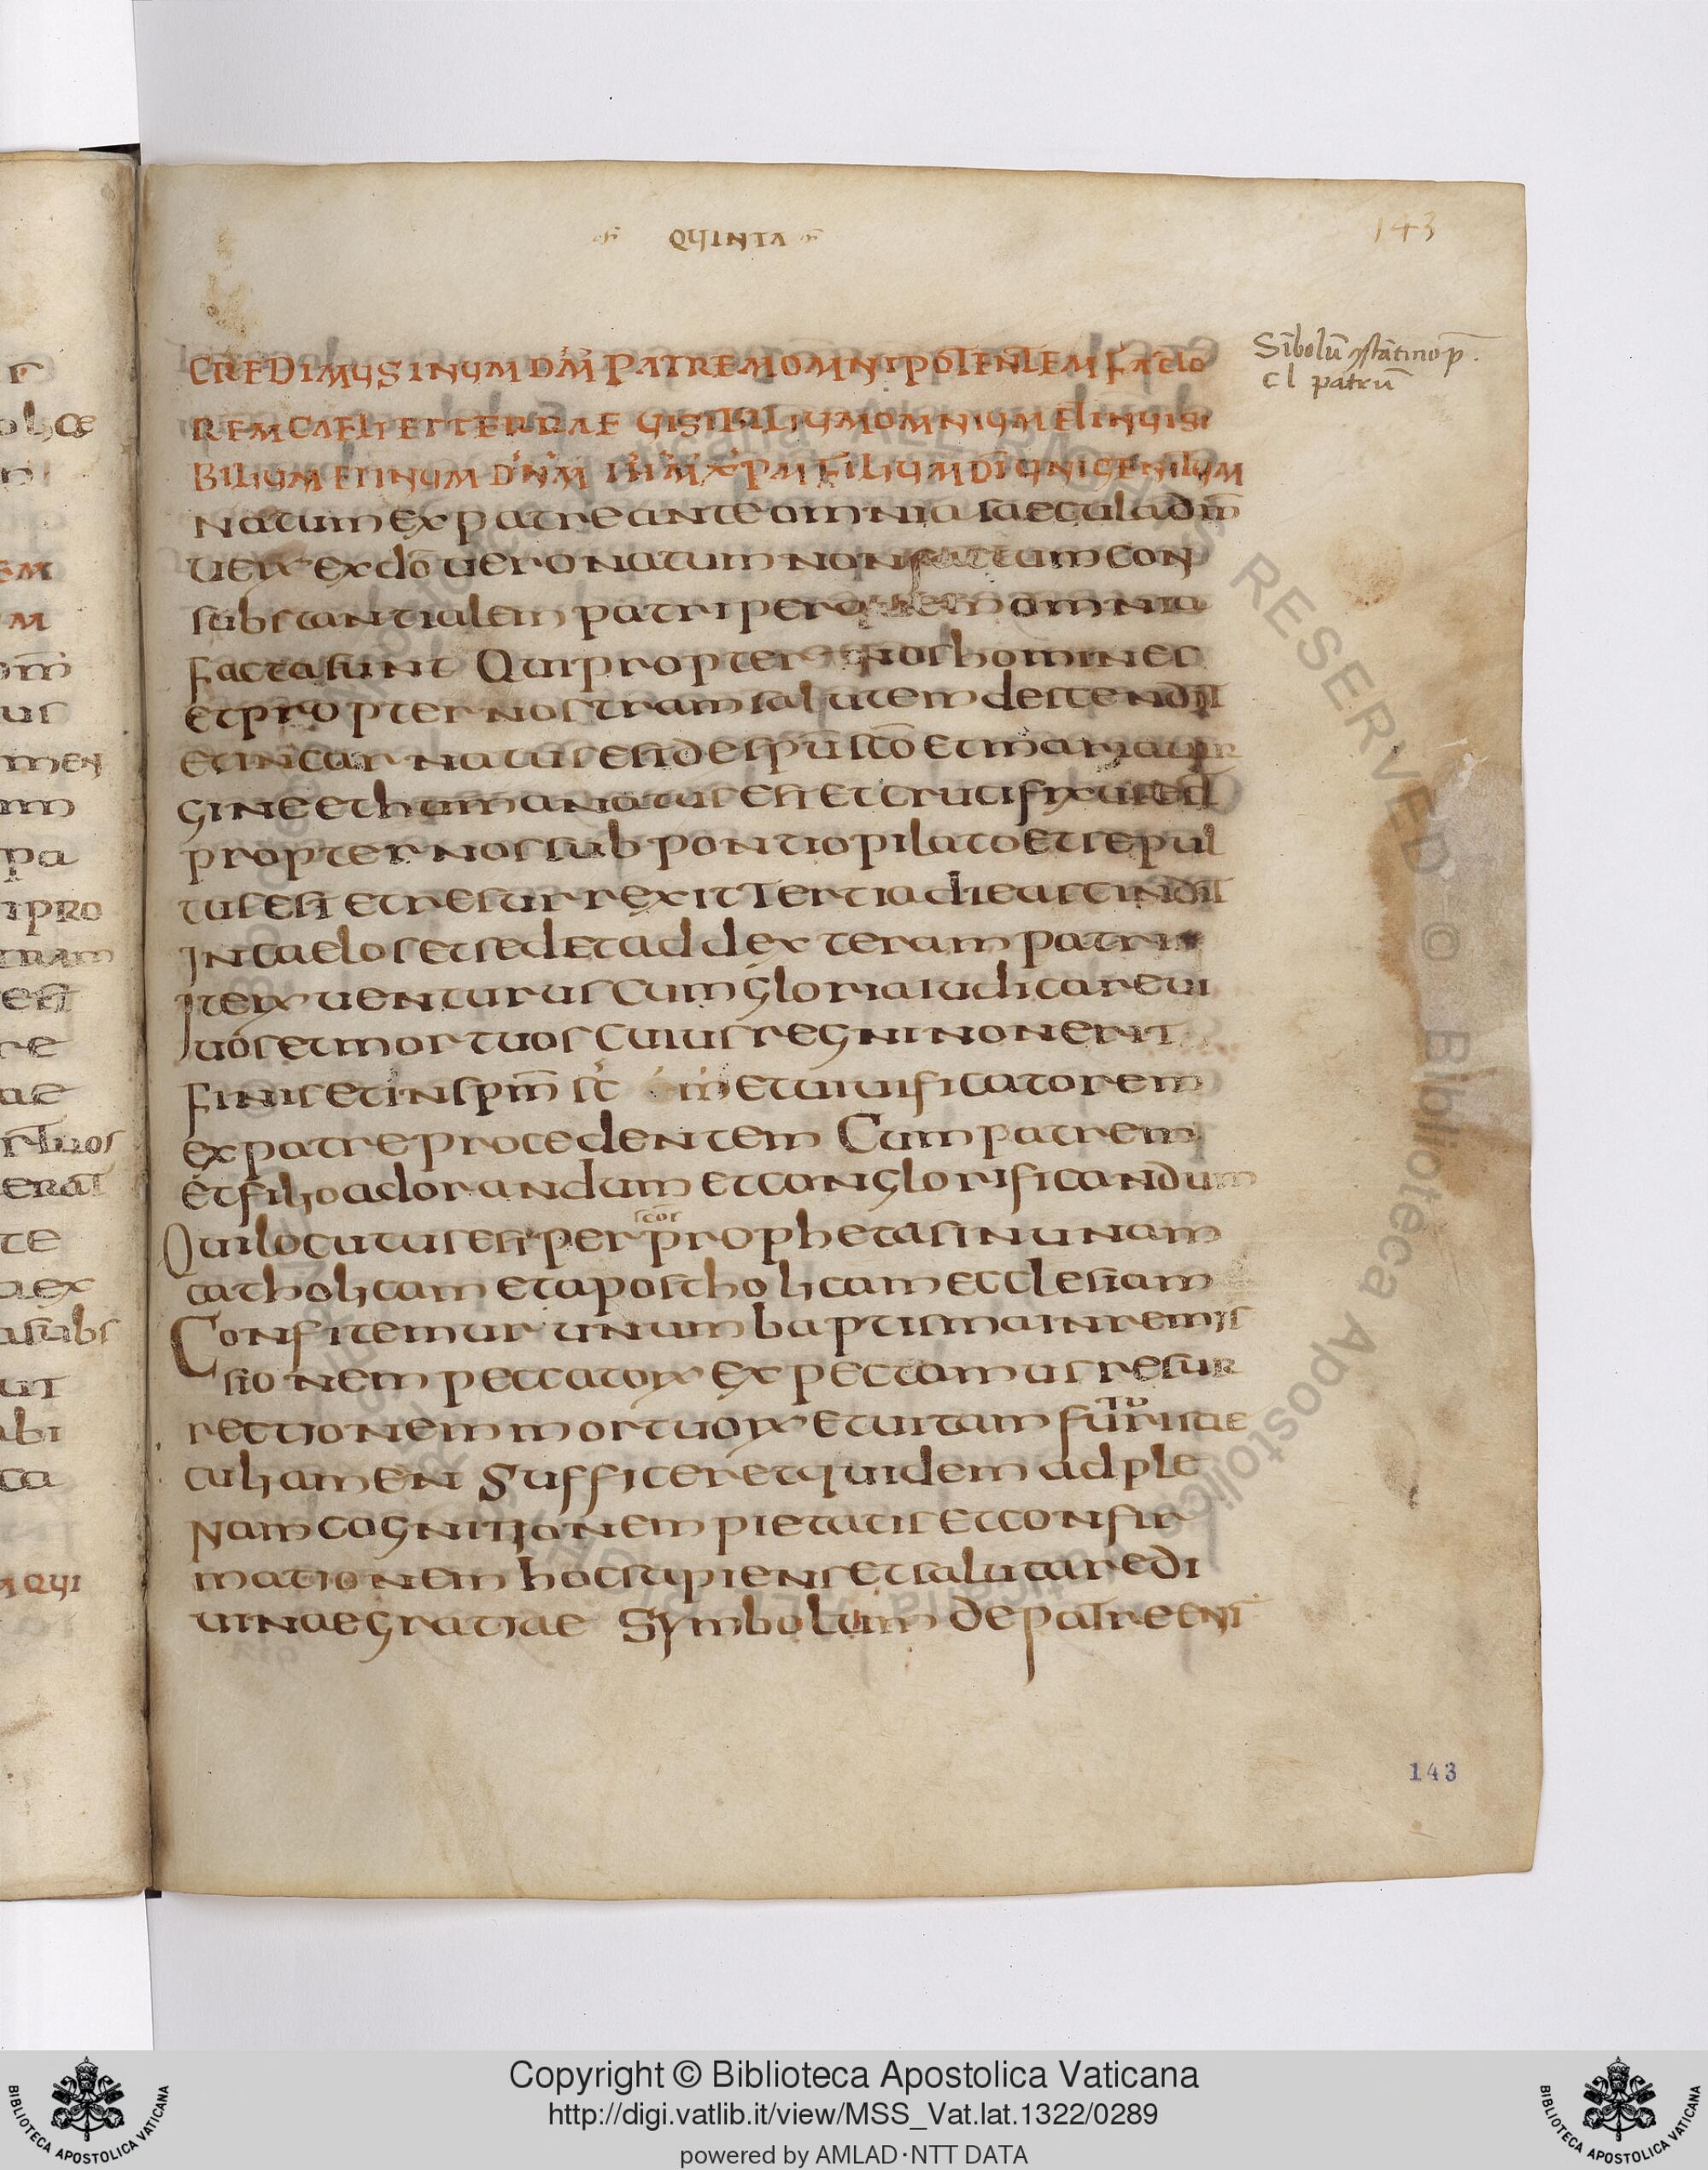 QUINTA
143
CREDIMUS IN UNUM DM̄ PATREM OMNIPOTENTEM FACTO
REM CAELI ET TERRAE UISIBILIUM OMNIUM ET INUISI
BILIUM ET IN UNUM DN̄M IHM̄ XPM̄ FILIUM DĪ UNIGENITUM
Natum ex patre ante omnia saecula dm̄
uerꝝ ex dō uero natum non factum con
substantialem patri per quem omnia
facta sunt Qui propter nos homines
et propter nostram salutem descendit
et incarnatus est de spū scō et maria uir
gine et humanatus est et crucifixus est
propter nos sub pontio pilato et sepul
tus est et resurrexit Tertia die ascindit
in caelos et sedet ad dexteram patris
Iterꝝ uenturus cum gloria iudicare ui
uos et mortuos Cuius regni non erit
finis et in spm̄ sc̄ m̄ et uiuificatorem
ex patre procedentem Cum patrem
et filio adorandum et conglorificandum
scōs
Qui locutus est per prophetas in unam
catholicam et apostholicam ecclesiam
Confitemur unum baptisma in remis
sionem peccatoꝝ expectamus resur
rectionem mortuoꝝ et uitam futuri sae
culi amen Sufficeret quidem ad ple
nam cognitionem pietatis et confir
mationem hoc sapiens et salutare di
uinae gratiae Symbolum de patre eni
Sībolū ꝯstātinop̄.
cl patrū
143
RESERVED © Biblioteca Apostolica
Copyright © Biblioteca Apostolica Vaticana
http://digi.vatlib.it/view/MSS_Vat.lat.1322/0289
powered by AMLAD·NTT DATA
BIBLIOTECA APOSTOLICA VATICANA
BIBLIOTECA APOSTOLICA VATICANA